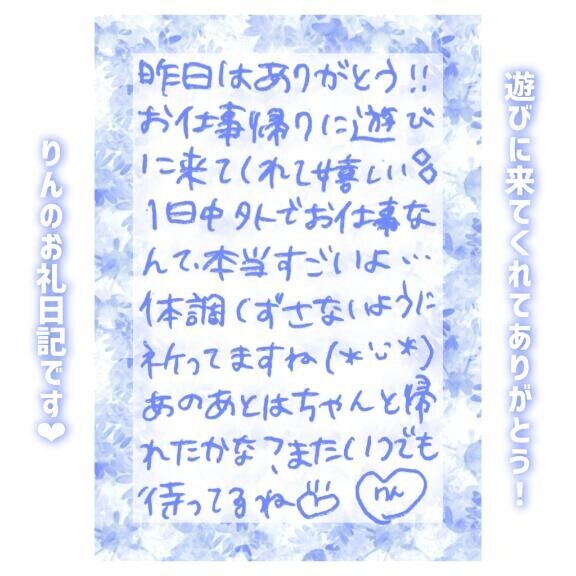 遊びに来てくれてありがとう！
昨日はありがとう!!
お仕事帰りに遊び
に来てくれて嬉しい
1日中外でお仕事な
んて、本当すごいよ…
体調くずさないように
祈ってますね(*¨*)
あのあとはちゃんと帰
れたかな？またいつでも
待ってるね
りん
りんのお礼日記です❤